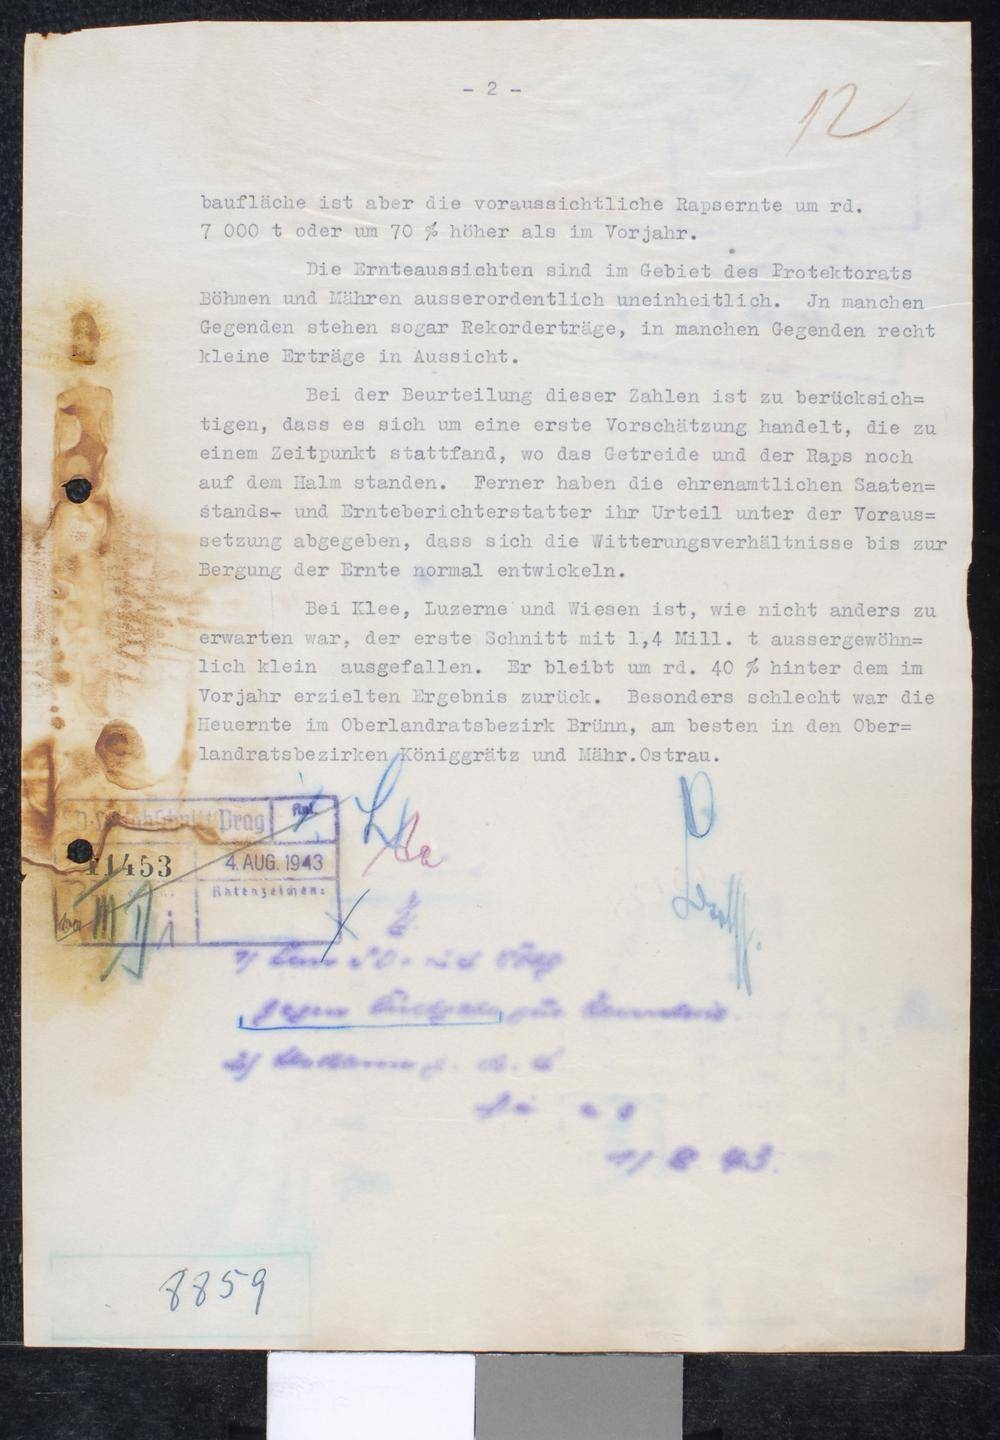 - 2 -
12
baufläche ist aber die voraussichtliche Rapsernte um rd.
7 000 t oder um 70 % höher als im Vorjahr.
Die Ernteaussichten sind im Gebiet des Protektorats
Böhmen und Mähren ausserordentlich uneinheitlich. Jn manchen
Gegenden stehen sogar Rekorderträge, in manchen Gegenden recht
kleine Erträge in Aussicht.
Bei der Beurteilung dieser Zahlen ist zu berücksich=
tigen, dass es sich um eine erste Vorschätzung handelt, die zu
einem Zeitpunkt stattfand, wo das Getreide und der Raps noch
auf dem Halm standen. Ferner haben die ehrenamtlichen Saaten=
stands- und Ernteberichterstatter ihr Urteil unter der Voraus=
setzung abgegeben, dass sich die Witterungsverhältnisse bis zur
Bergung der Ernte normal entwickeln.
Bei Klee, Luzerne und Wiesen ist, wie nicht anders zu
erwarten war, der erste Schnitt mit 1,4 Mill. t aussergewöhn=
lich klein ausgefallen. Er bleibt um rd. 40 % hinter dem im
Vorjahr erzielten Ergebnis zurück. Besonders schlecht war die
Heuernte im Oberlandratsbezirk Brünn, am besten in den Ober=
landratsbezirken Königgrätz und Mähr.Ostrau.
Prag
11453
4. AUG. 1943
Aktenzeichen:
1/
gegen Rückgabe zur Kenntnis.
2/
1/ 8 43.
8859